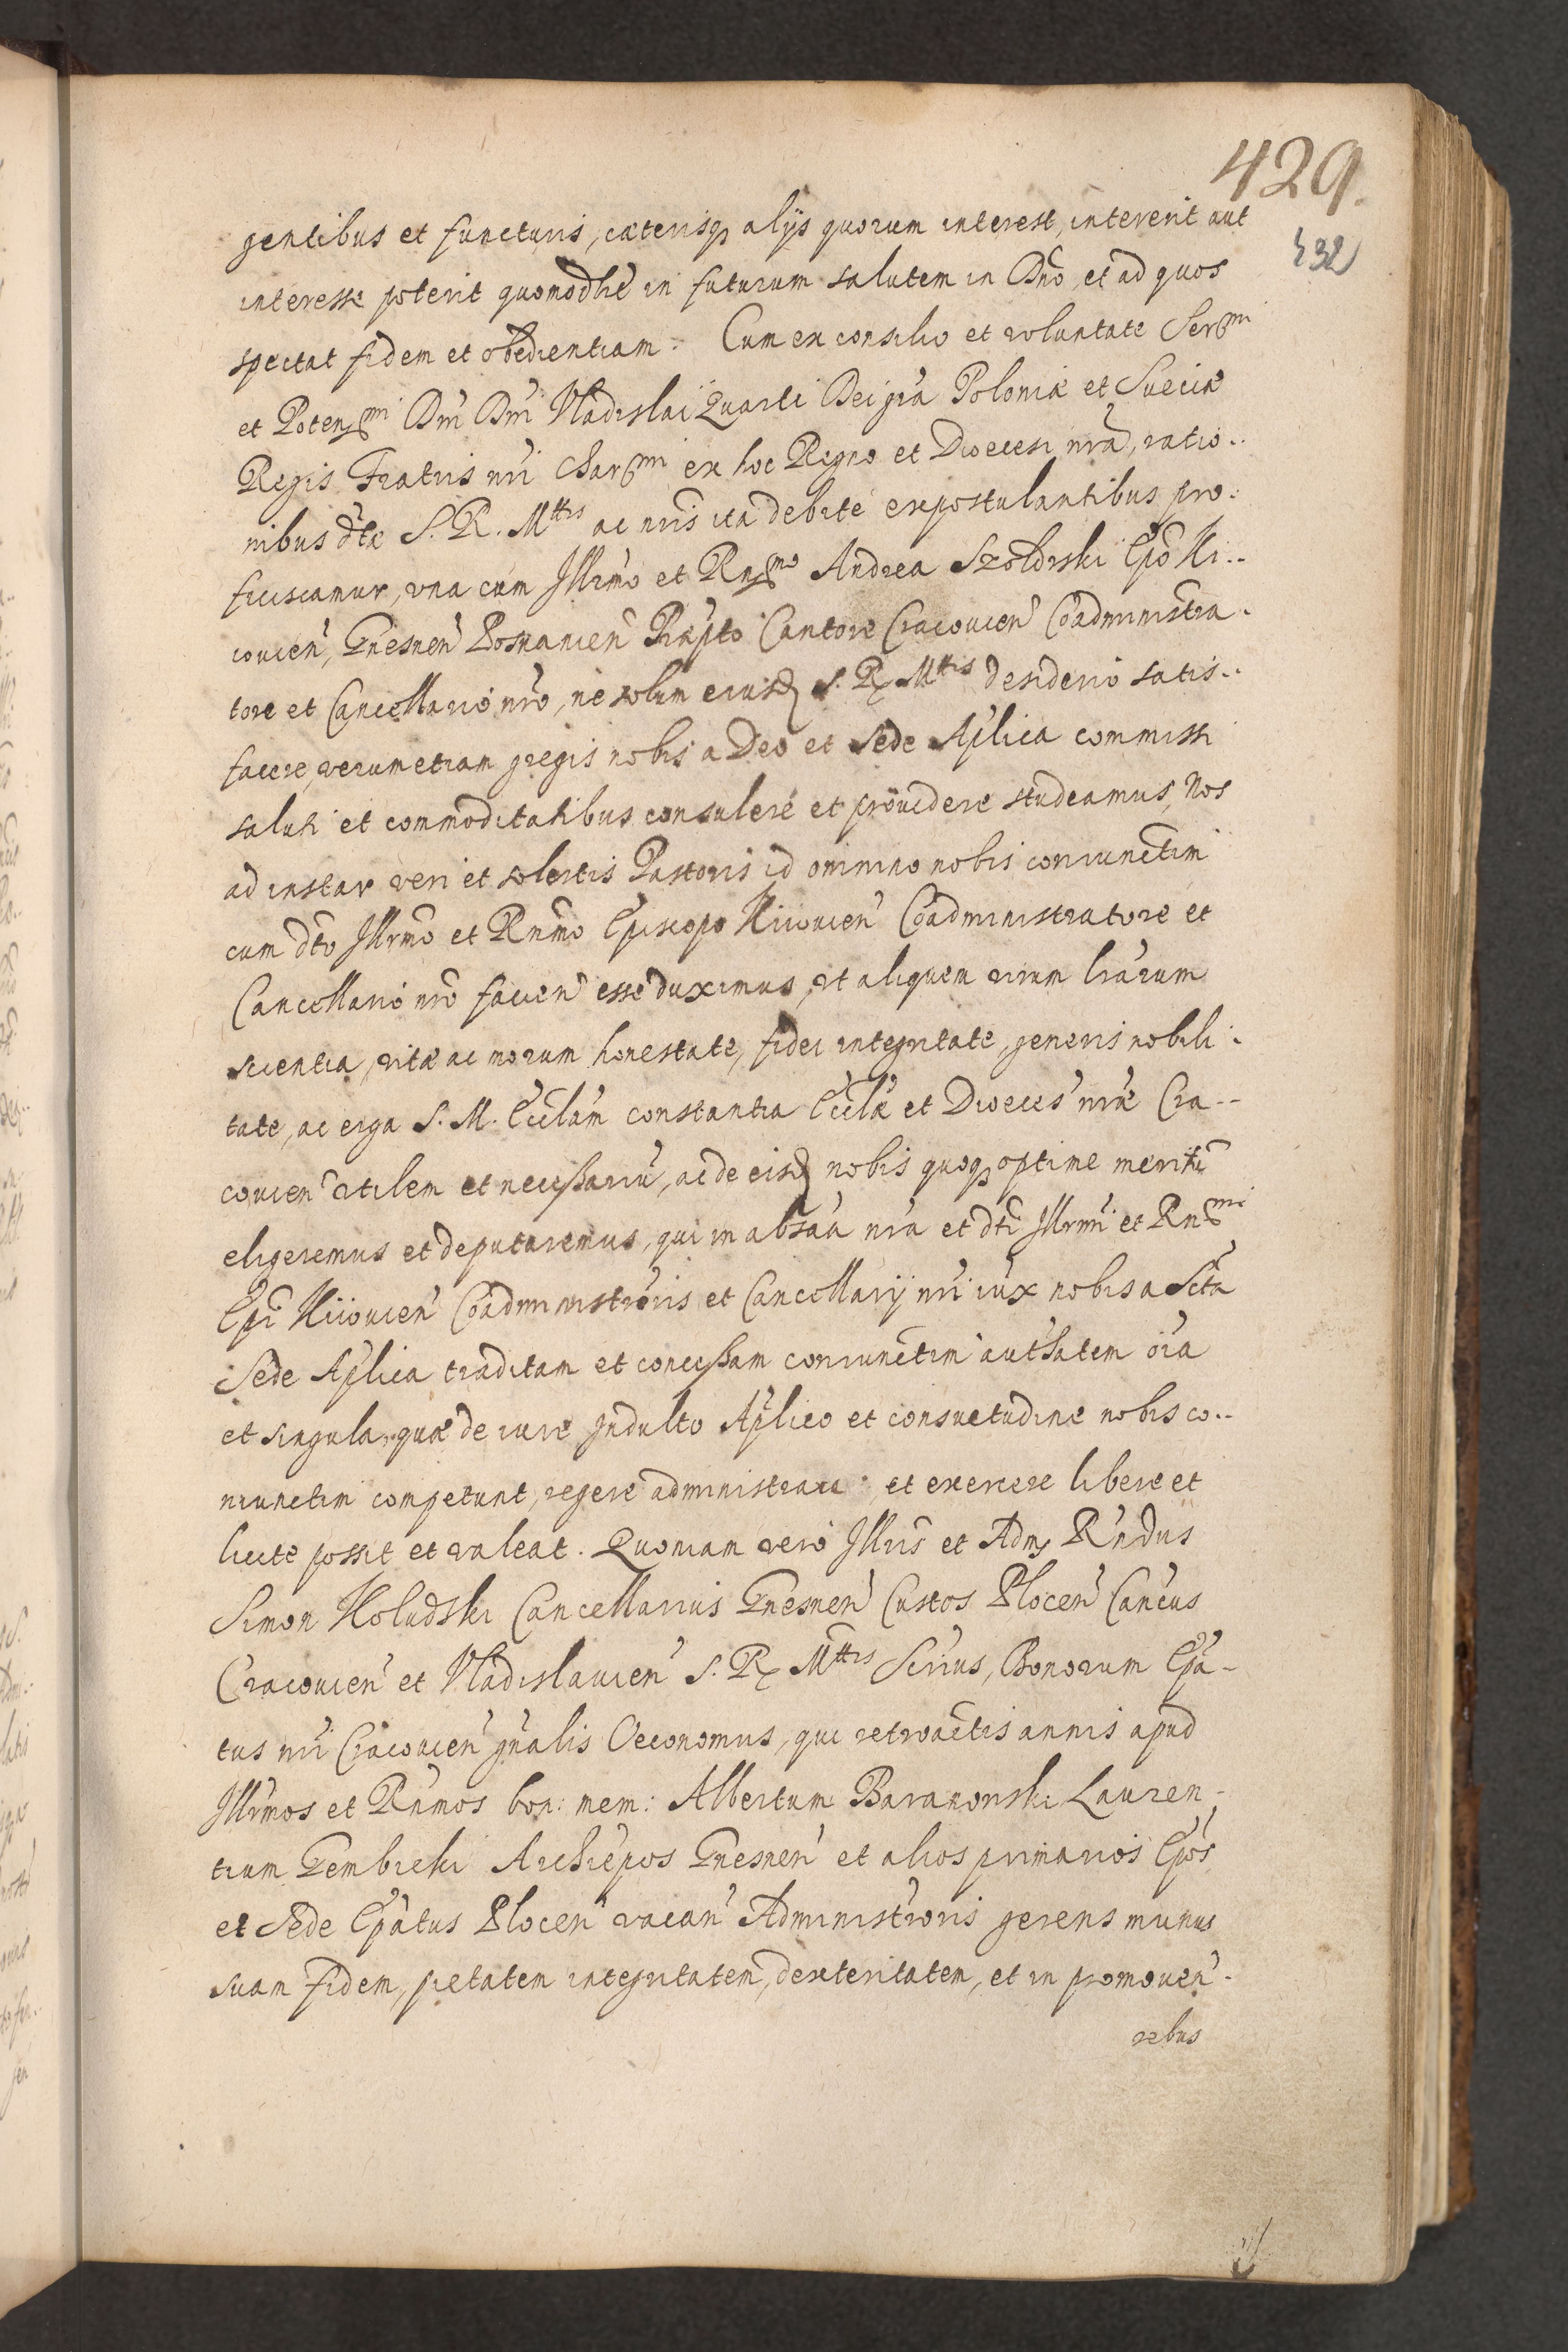 429.
432
gentibus et functuris, cæterisq3 alijs quorum interest, intererit aut
interesse poterit quomodłbt in futurum salutem in Dño, et ad quos
spectat fidem et obedientiam. Cum ex consilio et voluntate Sermi
et Potenmi Dñi Dñi Vladislai Quarti Dei gra Poloniæ et Sueciæ
Regis Fratris nri Charmi ex hoc Regno et Diœcesi nrã, ratio..
nibus dtæ S. R. Mttis ac nris ita debite expostulantibus pro.
ficiscamur, vna cum Illrmo et Rnmo Andrea Szoldrski Epõ Ki..
iouien, Gnesnen Posnanien Præpto Cantore Cracouien Coadministra.
tore et Cancellario nro, ne solum eiusd S. R. Mttis desiderio satis..
facere, verumetiam gregis nobis a Deo et Sede Aplica commissi
saluti et commoditatibus consulere et prouidere studeamus, Nos
ad instar veri et solertis Pastoris id omnino nobis coniunctim
cum dto Illrmo et Rnmo Episcopo Kiiouien Coadministratore et
Cancellario nro facien esse duximus, vt aliquem virum lrarum
scientia, vitæ ac morum honestate, fidei integritate, generis nobili.
tate, ac erga S. M. Ecclam constantia Ecclæ et Diœces nræ Cra--
couien vtilem et necessariu, ac de eisd nobis quoq3 optime meritũ
eligeremus et deputaremus, qui in absaa nra et dti Illrmi et Rnmi
Epi Kiiouien Coadministroris et Cancellarij nri iux nobis a Scta
Sede Aplica traditam et concessam coniunctim authatem oia
et singula, quæ de iure Indulto Aplico et consuetudine nobis co..
niunctim competunt, regere administrare et exercere libere et
licite possit et valeat. Quoniam vero Illris et Adm Rndus
Simon Koludzki Cancellarius Gnesnen Custos Plocen Cancus
Cracouien et Vladislauien S. R. Mttis Scrius, Bonorum Epa-
tus nri Cracouien gnalis Oeconomus, qui retroactis annis apud
Illrmos et Rnmos bon: mem: Albertum Baranowski Lauren-
tium Gembicki Archiepos Gnesnen et alios primarios Epos
et Sede Epatus Plocen vacan Administroris gerens munus
suam fidem, pietatem integritatem, dexteritatem, et in promouen.
rebus